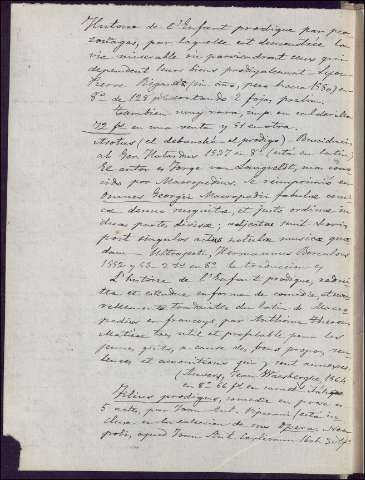 Histoire de l'Enfant prodigue par per
sonages, par laquelle est demonstrée la
vie miserable ou parviendront ceux qui
dependent leurs biens prodigalement. Lyon
Pierre Rigaud (sin año, pero hacia 1580) en
8º de 128 pp. contando 2 fojas prelim.
Tambien muy rara,
72 fr en una venta y 51 en otra.
Asotus (el debauché = el prodigo) Buscoducis
ab Ger. Hatardus 1537 en 8º (está en latin)
El autor es Jorge van Langveldt, mas cono
cido por Macropedius. Se reimprimió en
Omnes Georgii Macropedii fabulae comi
cae denuo recognitae, et justo ordine in
duas partes divisae; adjectae sunt
post singulos actus notulae musicae quae
dam — Ultrajecti, Hermannus Borculous
1552 y 53. 2 t. en 8º. La traduccion es
L'histoire de l'Enfant prodigue, reduic
te et estendue en forme de comédie, et nou
vellement traduite du latin de Macro
pedius en françoys par Anthoine Tiron
Matière très utile et profitable pour les
jeunes gens, a cause des bons propos, sen
tences et amonitions qui y sont inserez
(Anvers, Jean Waesberghe, 1564
en 8º 66 ff en caract. italique
Filius prodigus, comedia en prosa en
5 acts, por Juan Ant. Viperani está in
clusa en la coleccion de sus Opera. Nea
poli, apud Joan. Bat.